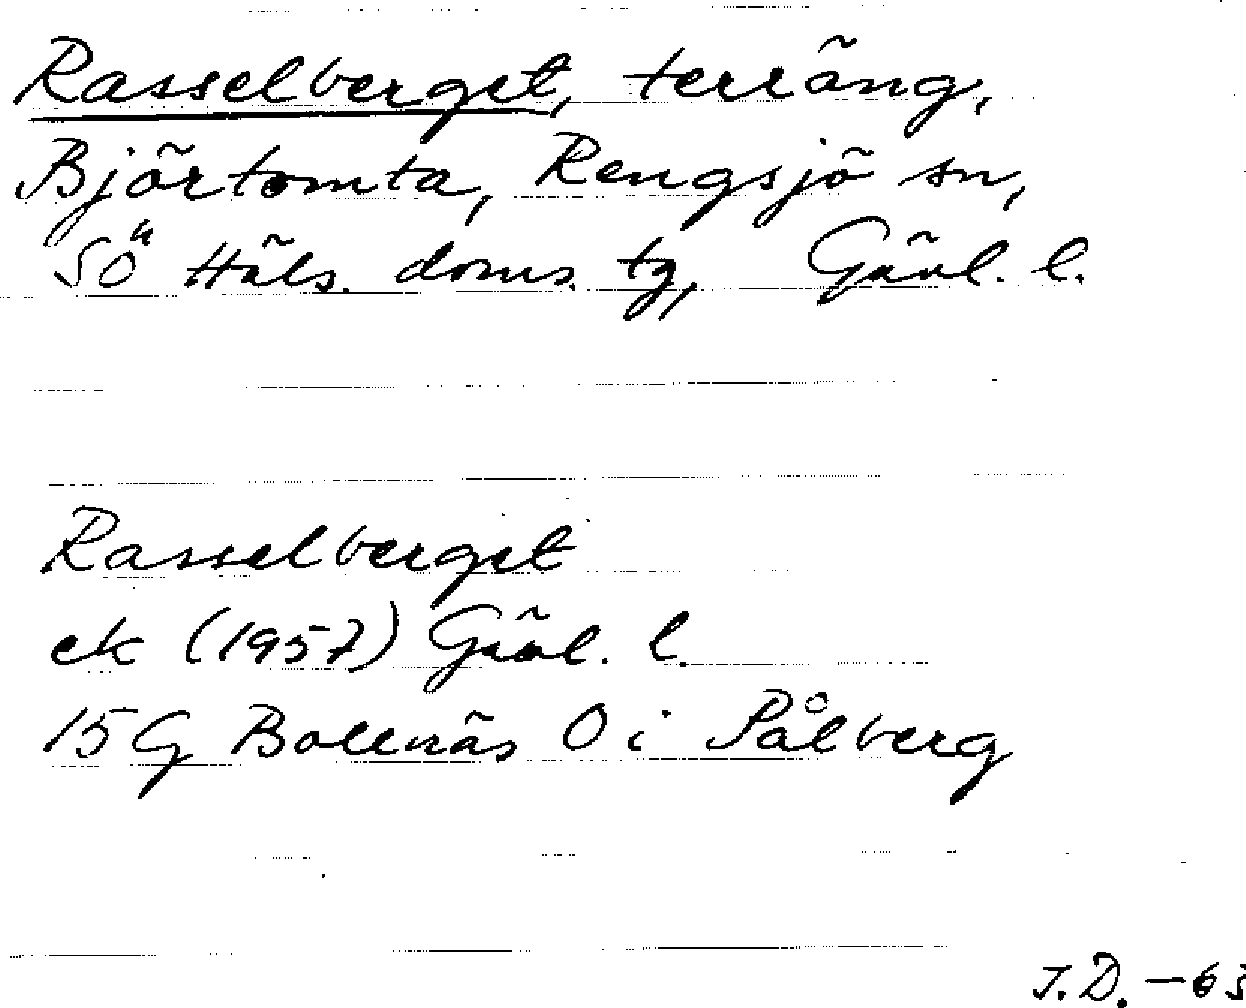 Rasselberget, terräng,
Björtomta, Rengsjö sn,
SÖ Häls. doms. tg, Gävl. l.
Rasselberget
ek (1957) Gävl. l.
15G Bollnäs 0 i Pålberg
J.D. -63